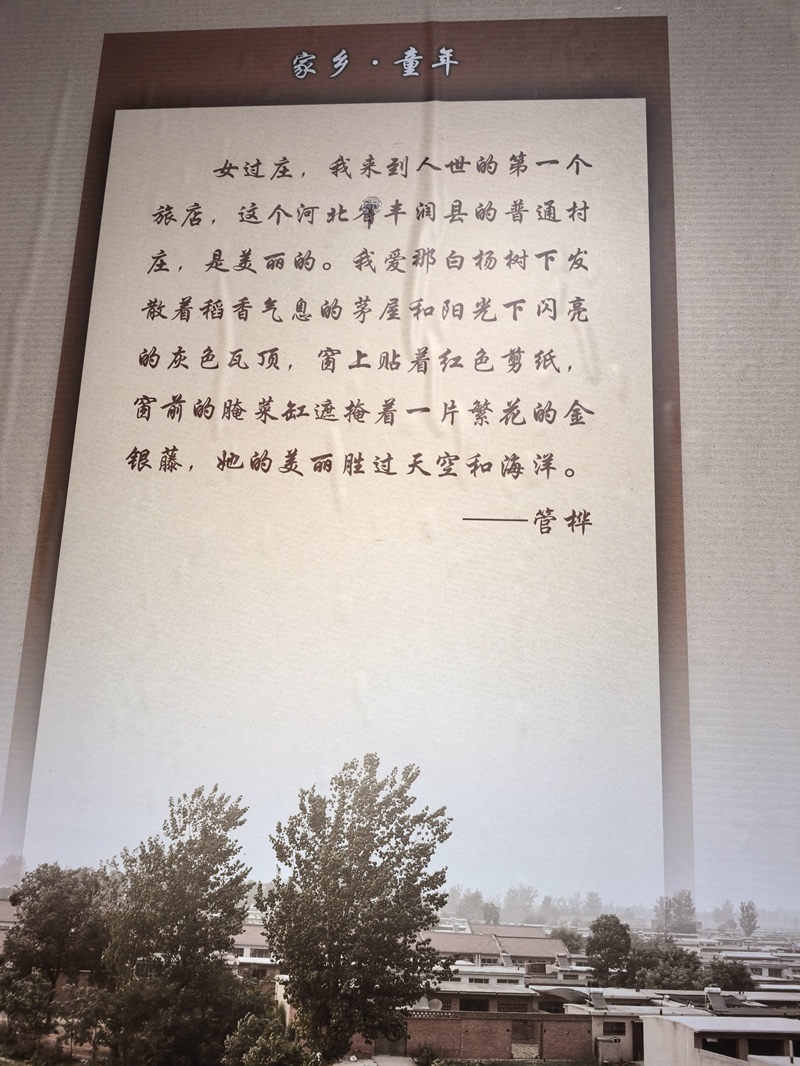 家乡·童年
女过庄，我来到人世的第一个
旅店，这个河北省丰润县的普通村
庄，是美丽的。我爱那白杨树下发
散着稻香气息的茅屋和阳光下闪亮
的灰色瓦顶，窗上贴着红色剪纸，
窗前的腌菜缸遮掩着一片繁花的金
银藤，她的美丽胜过天空和海洋。
——管桦